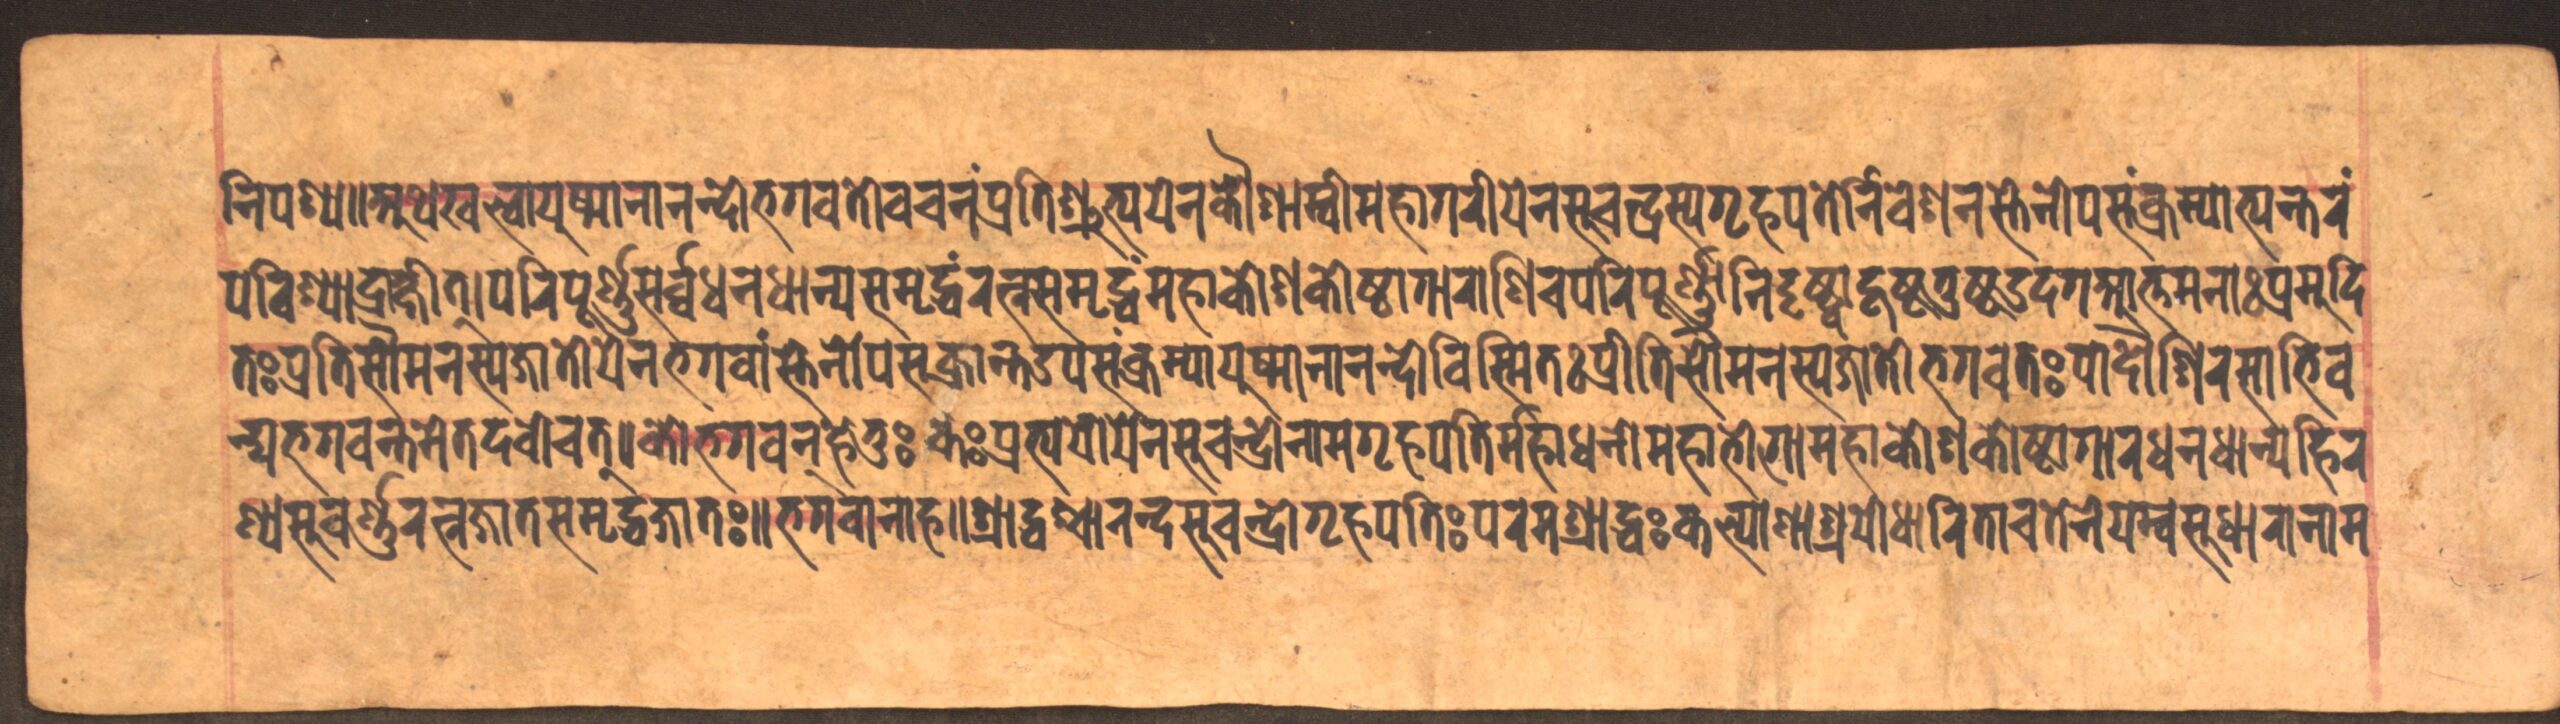 निपश्य॥अथखल्वायुष्मानानन्दोभगवतोवचनंप्रतिश्रुत्ययेनकौशाम्बीमहागरीयेनसुचन्द्रस्यगृहपतेर्निवेशनस्तेनोपसंक्रम्याभ्यन्तरं
पविश्याद्राक्षीत्।परिपूर्ण्णसर्व्वधनधान्यसमृद्धंरत्नसमृद्धंमहाकोशकोष्ठागाराणिचपरिपूर्ण्णानिदृष्ट्वाहृष्टतुष्टउदगआत्तमनाःप्रमुदि
तःप्रतिसौमनस्यजातोयेनभगवांस्तेनोपसक्रान्तउपसंक्रम्यायुष्मानानन्दोविस्मितःप्रीतिसौमनस्यजातोभगवतःपादौशिरसाभिव
न्द्यभगवन्तमेतदवोचत्।कोभगवन्हेतुःकःप्रत्ययोयेनसुचन्द्रोनामगृहपतिर्महाधनोमहाभोगोमहाकोशकोष्ठागारधनधान्यहिर
ण्यसुवर्ण्णरत्नजातसमृद्धजातः॥भगवानाह॥श्राद्धश्चानन्दसुचन्द्रोगृहपतिःपरमश्राद्धःकल्याणाश्रयोधारिताचतेनेयम्वसुधारानाम